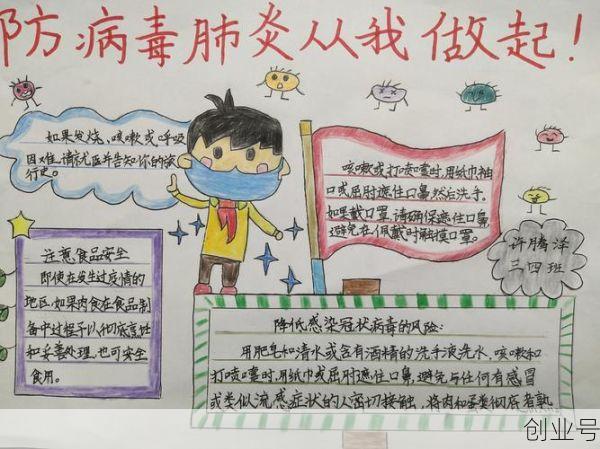 防病毒肺炎从我做起!
如果发烧,咳嗽或呼吸
困难,请就医并告知你的旅
行史。
咳嗽或打喷嚏时,用纸巾袖
口或屈肘遮住口鼻然后洗手。
如果戴口罩,请确保遮住口鼻
避免在佩戴时触摸口罩。
许腾泽
三四班
注意食品安全
即使在发生过疫情的
地区,如果肉食在食品制
备中过程予以彻底烹饪
和妥善处理,也可安全
食用。
降低感染冠状病毒的风险:
用肥皂和清水或含有酒精的洗手液洗水,咳嗽和
打喷嚏时,用纸巾或屈肘遮住口鼻,避免与任何有感冒
或类似流感症状的人密切接触,将肉和蛋类彻底煮熟
创业号